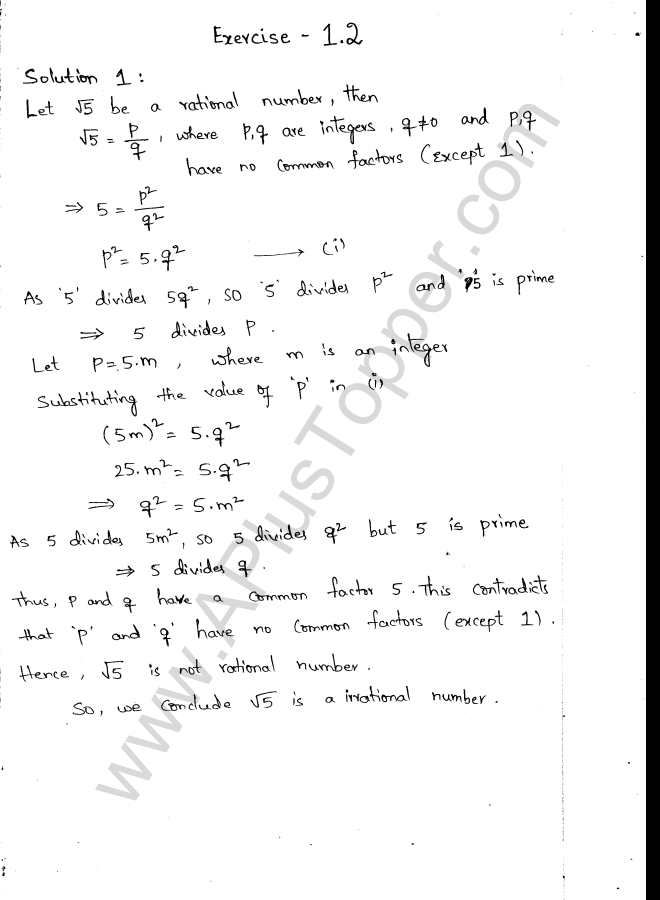 Exercise - 1.2
Solution 1:
Let √5 be a rational number, then
√5 = p/q, where p,q are integers, q≠0 and p,q
have no common factors (except 1).
⇒ 5 = p²/q²
p² = 5.q² ⟶ (i)
As '5' divides 5q², so '5' divides p² and '5' is prime
⇒ 5 divides p.
Let p=5.m, where m is an integer
Substituting the value of 'p' in (i)
(5m)² = 5.q²
25.m² = 5.q²
⇒ q² = 5.m²
As 5 divides 5m², so 5 divides q² but 5 is prime
⇒ 5 divides q.
Thus, p and q have a common factor 5. This contradicts
that 'p' and 'q' have no common factors (except 1).
Hence, √5 is not rational number.
So, we conclude √5 is a irrational number.
www.APlusTopper.com